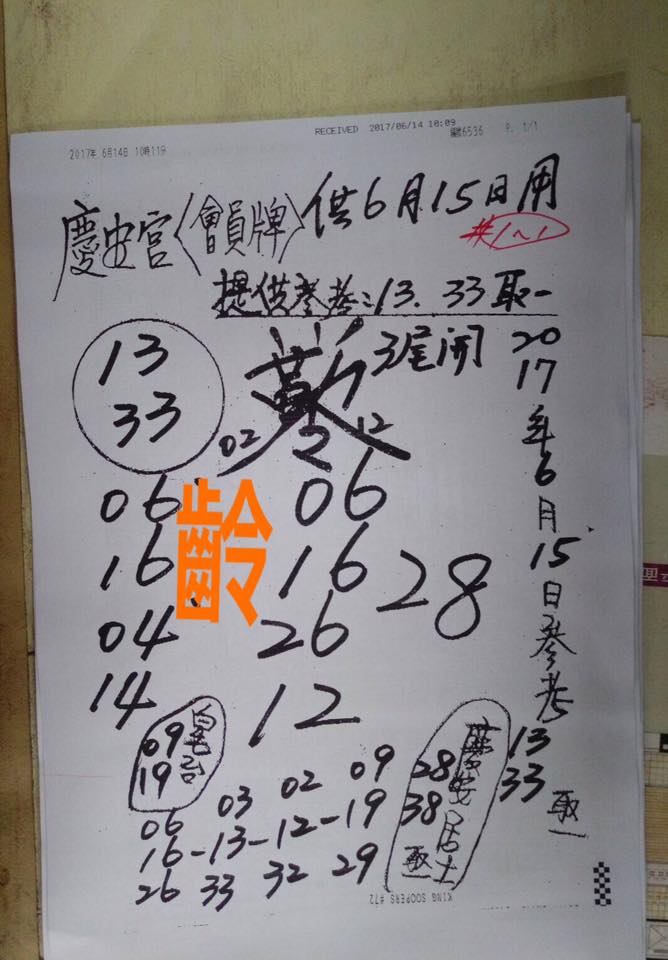 RECEIVED 2017/06/14 10:09
2017年 6月14日 10時11分
6536 P. 1/1
慶忠宮〈會員牌〉供6月15日用
#1~1
提供參考:13.33取一
13
33
3尾開
02 12
2017年6月15日參考
13
33
取一
06
16
04
14
齡
06
16
26
12
28
09
19
06 03 02 09
16-13-12-19
26 33 32 29
28
38
取一
居士
KING SOOPERS #72